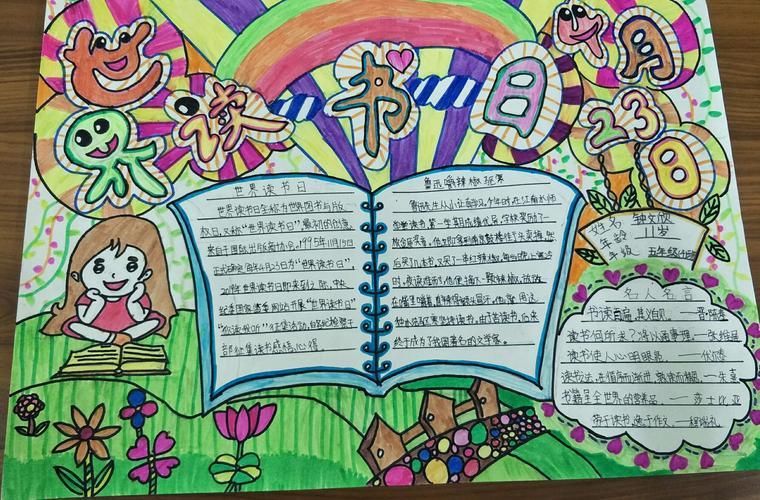 世界读书日
4月23日
世界读书日
世界读书日全称为世界图书与版
权日,又称“世界读书日”,最初的创意
来自于国际出版商协会。1995年11月15日
正式确定每年4月23日为“世界读书日”
世界读书日即来到之际,中央
纪委国家监委网站开展“世界读书日”
部征集读书感悟心得
鲁迅嚼辣椒驱寒
鲁迅先生从小认真学习。少年时,在江南水师
学堂读书,第一学期成绩优异,学校奖励了一
枚金质奖章。他立即拿到南京鼓楼街头卖掉,然
后买了几本书,又买了一串红辣椒。每当晚上寒冷
时,夜读难耐,他便摘下一颗辣椒,放在
嘴里嚼着,直辣得额头冒汗。他就用这
种办法驱寒坚持读书。由于苦读书,后来
终于成为了我国著名的文学家。
姓名 钟文欣
年龄 11岁
年级 五年级
名人名言
书读百遍,其义自见。——晋·陈寿
读书何所求?将以通事理。——张维屏
读书使人心明眼亮。——伏尔泰
读书之法,在循序而渐进,熟读而精思。——朱熹
书籍是全世界的营养品。——莎士比亚
劳于读书,逸于作文。——程端礼